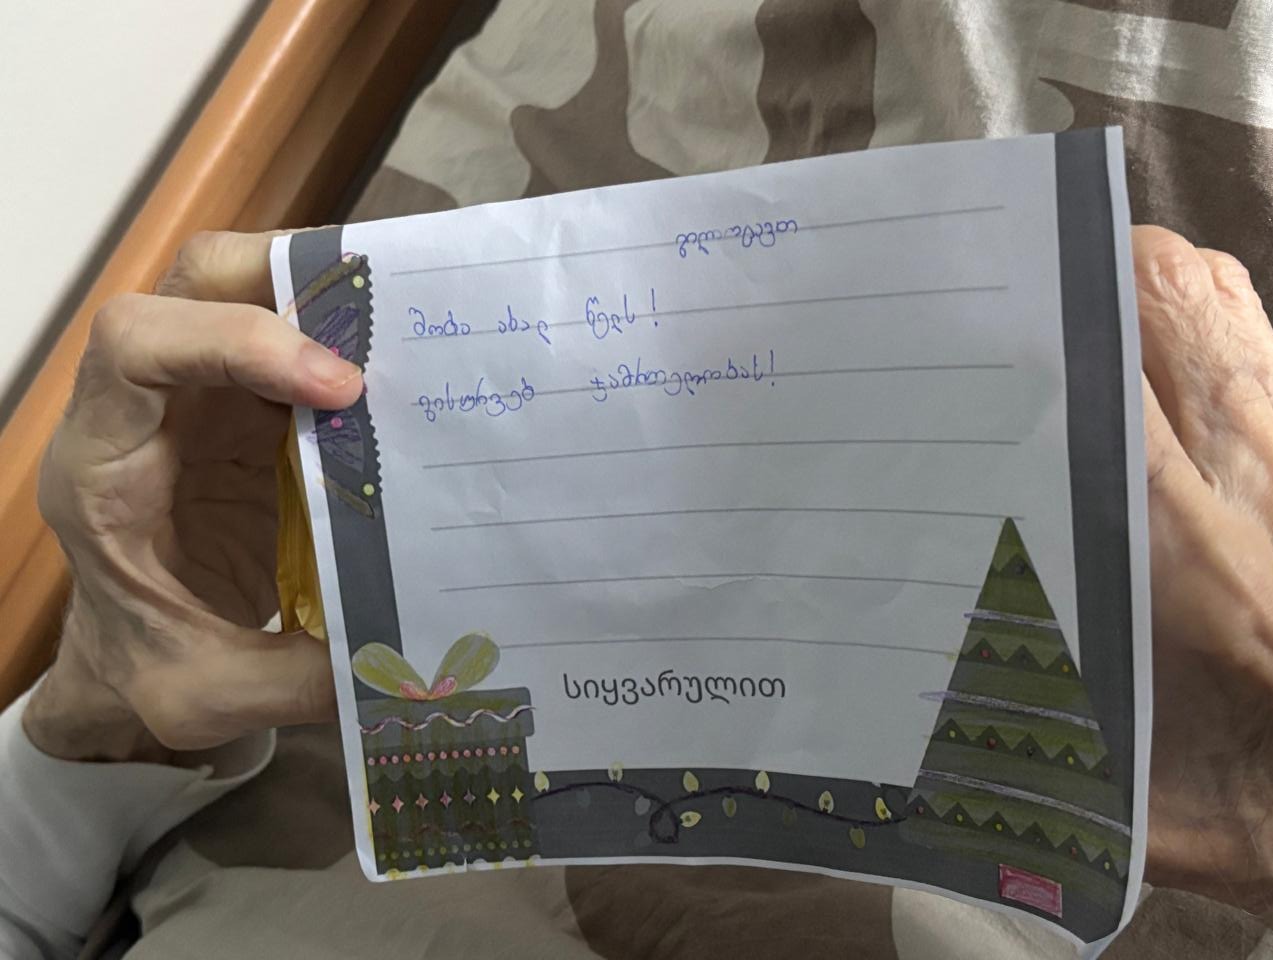 გილოცავთ
შობა ახალ წელს!
გისურვებ ჯამრთელობას!
სიყვარულით